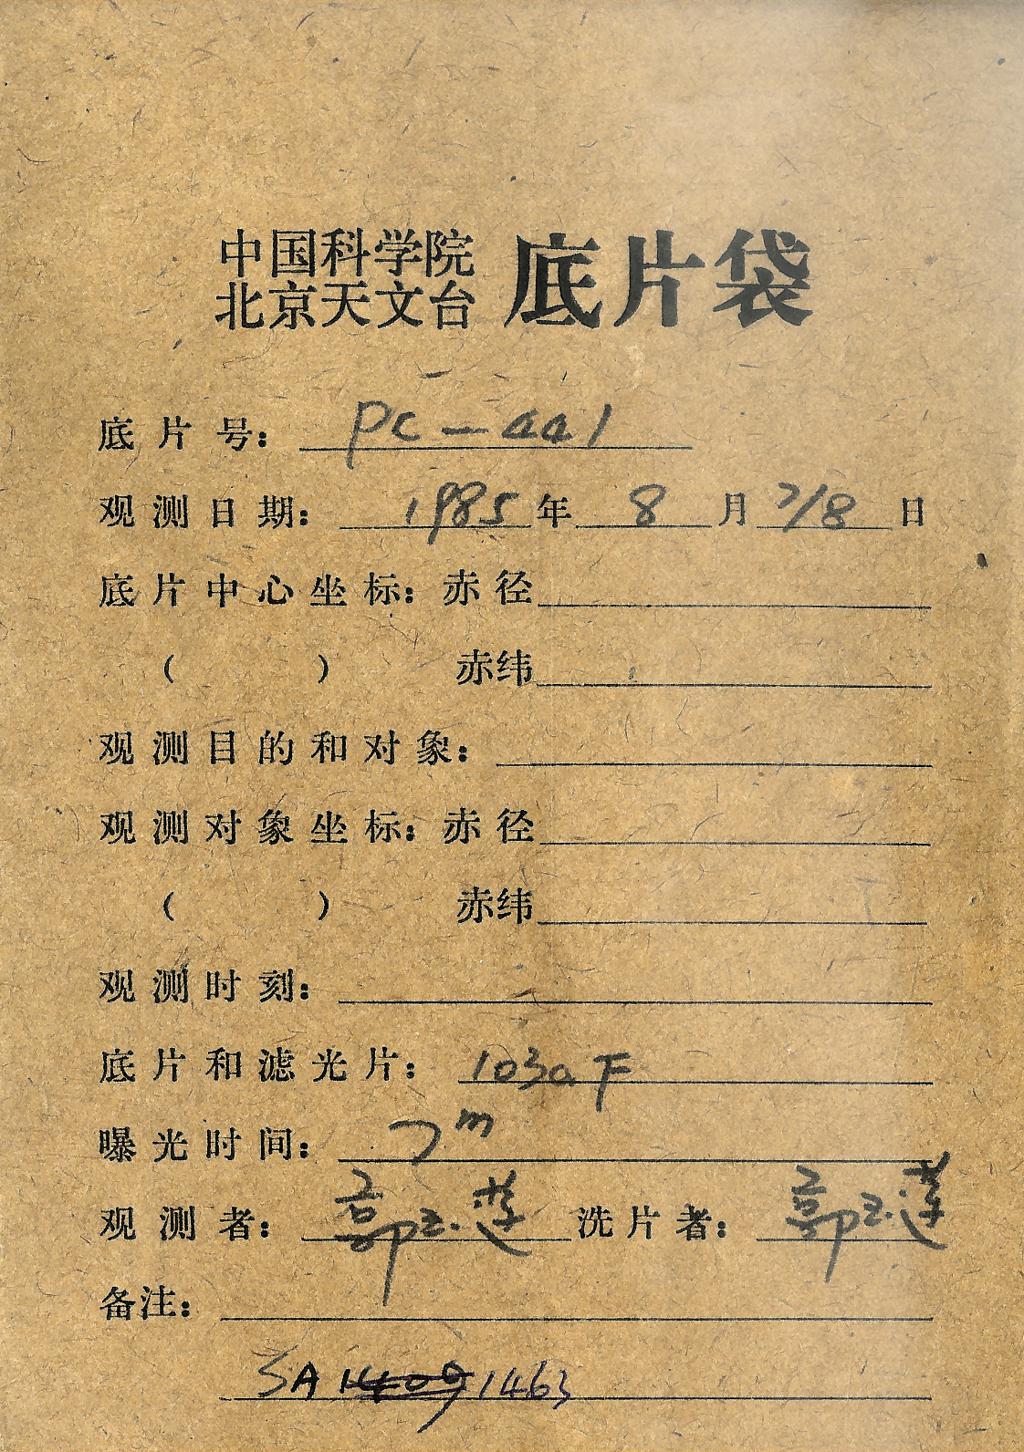 中国科学院
北京天文台 底片袋
底片号: PC-441
观测日期: 1985年 8月 7/8日
底片中心坐标: 赤径
( ) 赤纬
观测目的和对象:
观测对象坐标: 赤径
( ) 赤纬
观测时刻:
底片和滤光片: 103aF
曝光时间: 7m
观测者: 郭玉莲 洗片者: 郭玉莲
备注:
SA 1463